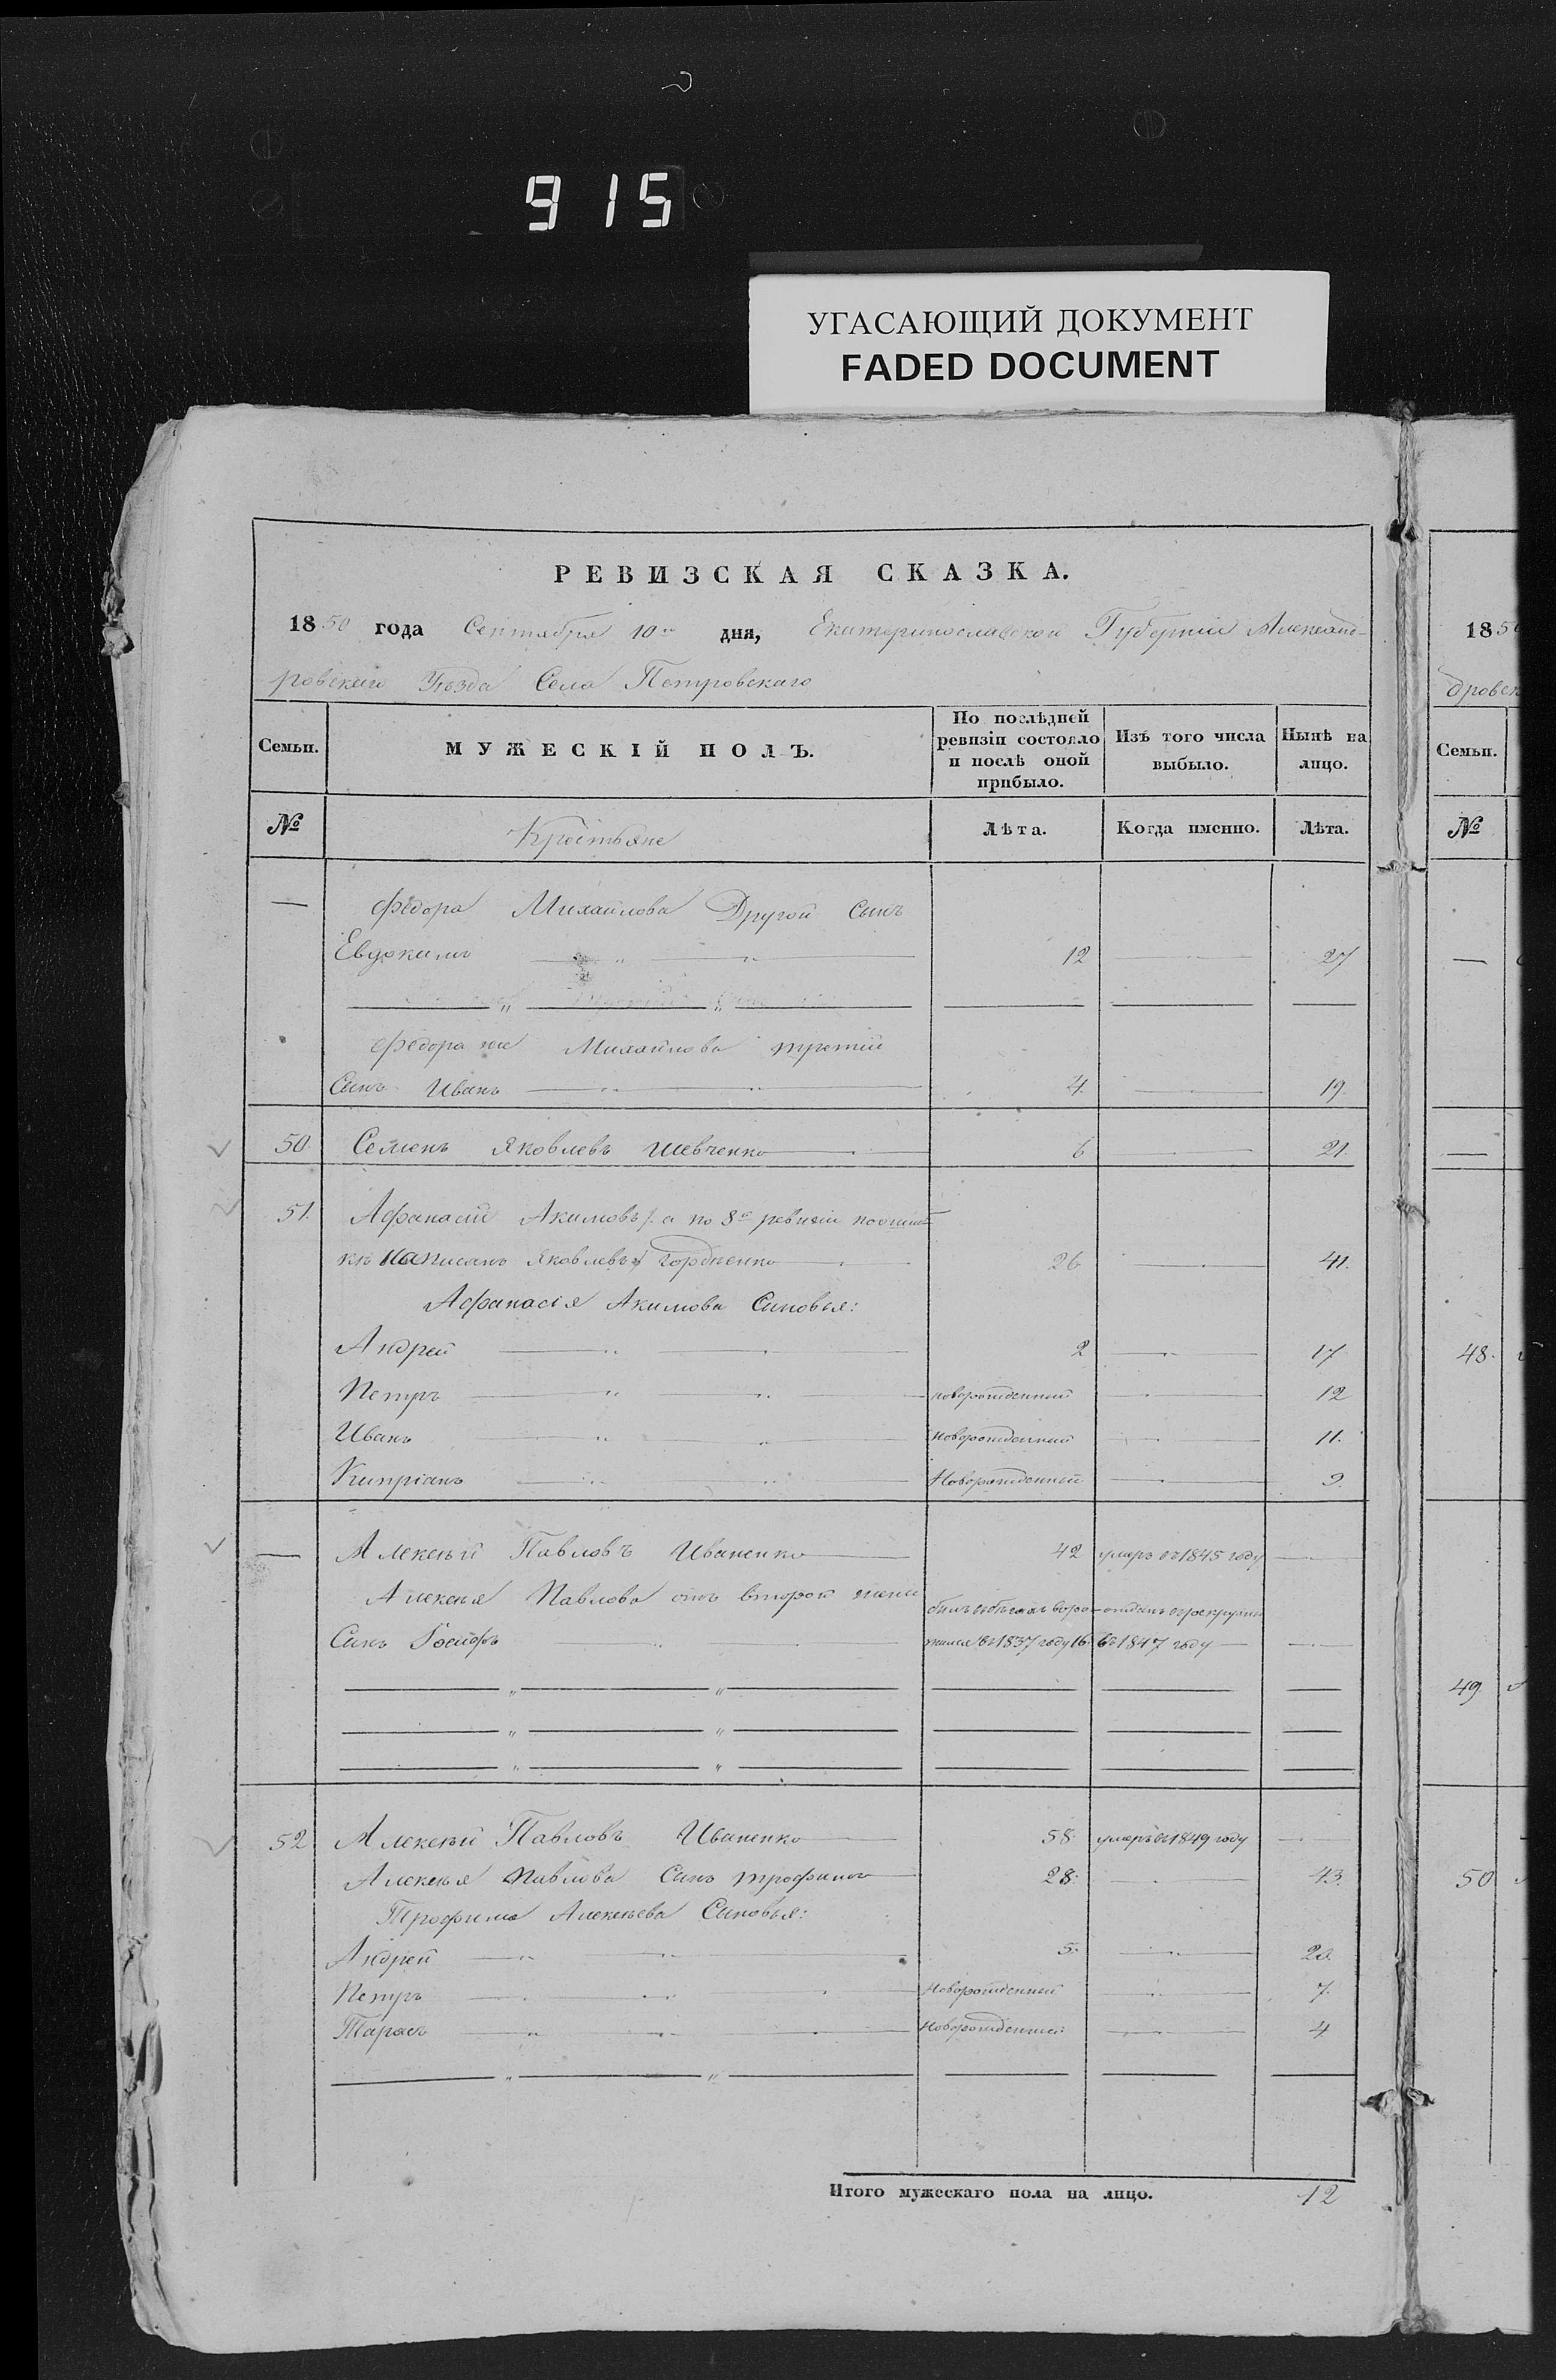 915
УГАСАЮЩИЙ ДОКУМЕНТ
FADED DOCUMENT
РЕВИЗСКАЯ СКАЗКА.
1850 года Сентября 10го дня, Екатеринославской Губерніи Александ-
ровскаго Уѣзда Села Петровскаго
Семьи. МУЖЕСКІЙ ПОЛЪ. По послѣдней ревизіи состояло и послѣ оной прибыло. Изъ того числа выбыло. Нынѣ на лицо.
№ Крестьяне Лѣта. Когда именно. Лѣта.
— Федора Михайлова Другой Сынъ
Евдокимъ 12 — 27
Федора же Михайлова третій
Сынъ Иванъ 4. — 19.
50. Семенъ Яковлевъ Шевченко 6 — 21.
51. Афанасій Акимовъ /: а по 8й ревизіи
написанъ Яковлевъ :/ Гордіенко 26 — 41.
Афанасія Акимова Сыновья:
Андрей 2 — 17
Петръ новорожденный — 12
Иванъ новорожденный — 11.
Кипріанъ Новорожденный — 9.
— Алексѣй Павловъ Иваненко 42 умеръ въ 1845 году —
Алексѣя Павлова отъ второй жены
Сынъ Іосифъ былъ въ бѣгахъ воро-
тился въ 1837 году 16. отданъ въ рекруты
въ 1847 году —
52 Алексѣй Павловъ Иваненко 58. умеръ въ 1849 году —
Алексѣя Павлова Сынъ Трофимъ 28. — 43.
Трофима Алексѣева Сыновья:
Андрей 5. — 20.
Петръ Новорожденный — 7.
Тарасъ Новорожденный — 4
Итого мужескаго пола на лицо. 12
185
дровск
Семьи.
№
48.
49.
50